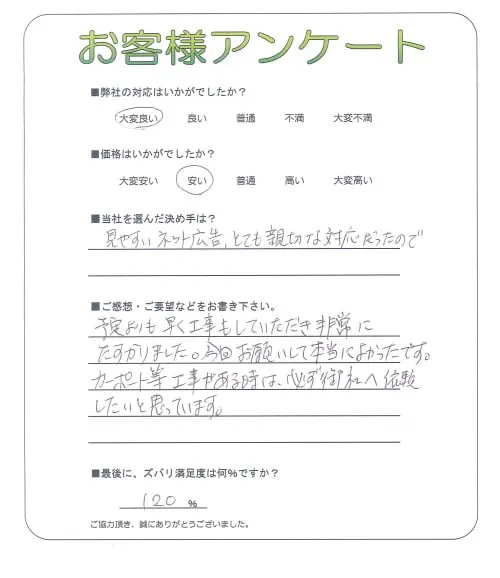 お客様アンケート
■弊社の対応はいかがでしたか？
大変良い 良い 普通 不満 大変不満
■価格はいかがでしたか？
大変安い 安い 普通 高い 大変高い
■当社を選んだ決め手は？
見やすいネット広告、とても親切な対応だったので
■ご感想・ご要望などをお書き下さい。
予定よりも早く工事もしていただき非常に
たすかりました。今回お願いして本当によかったです。
カーポート等工事がある時は、必ず御社へ依頼
したいと思っています。
■最後に、ズバリ満足度は何％ですか？
120 %
ご協力頂き、誠にありがとうございました。